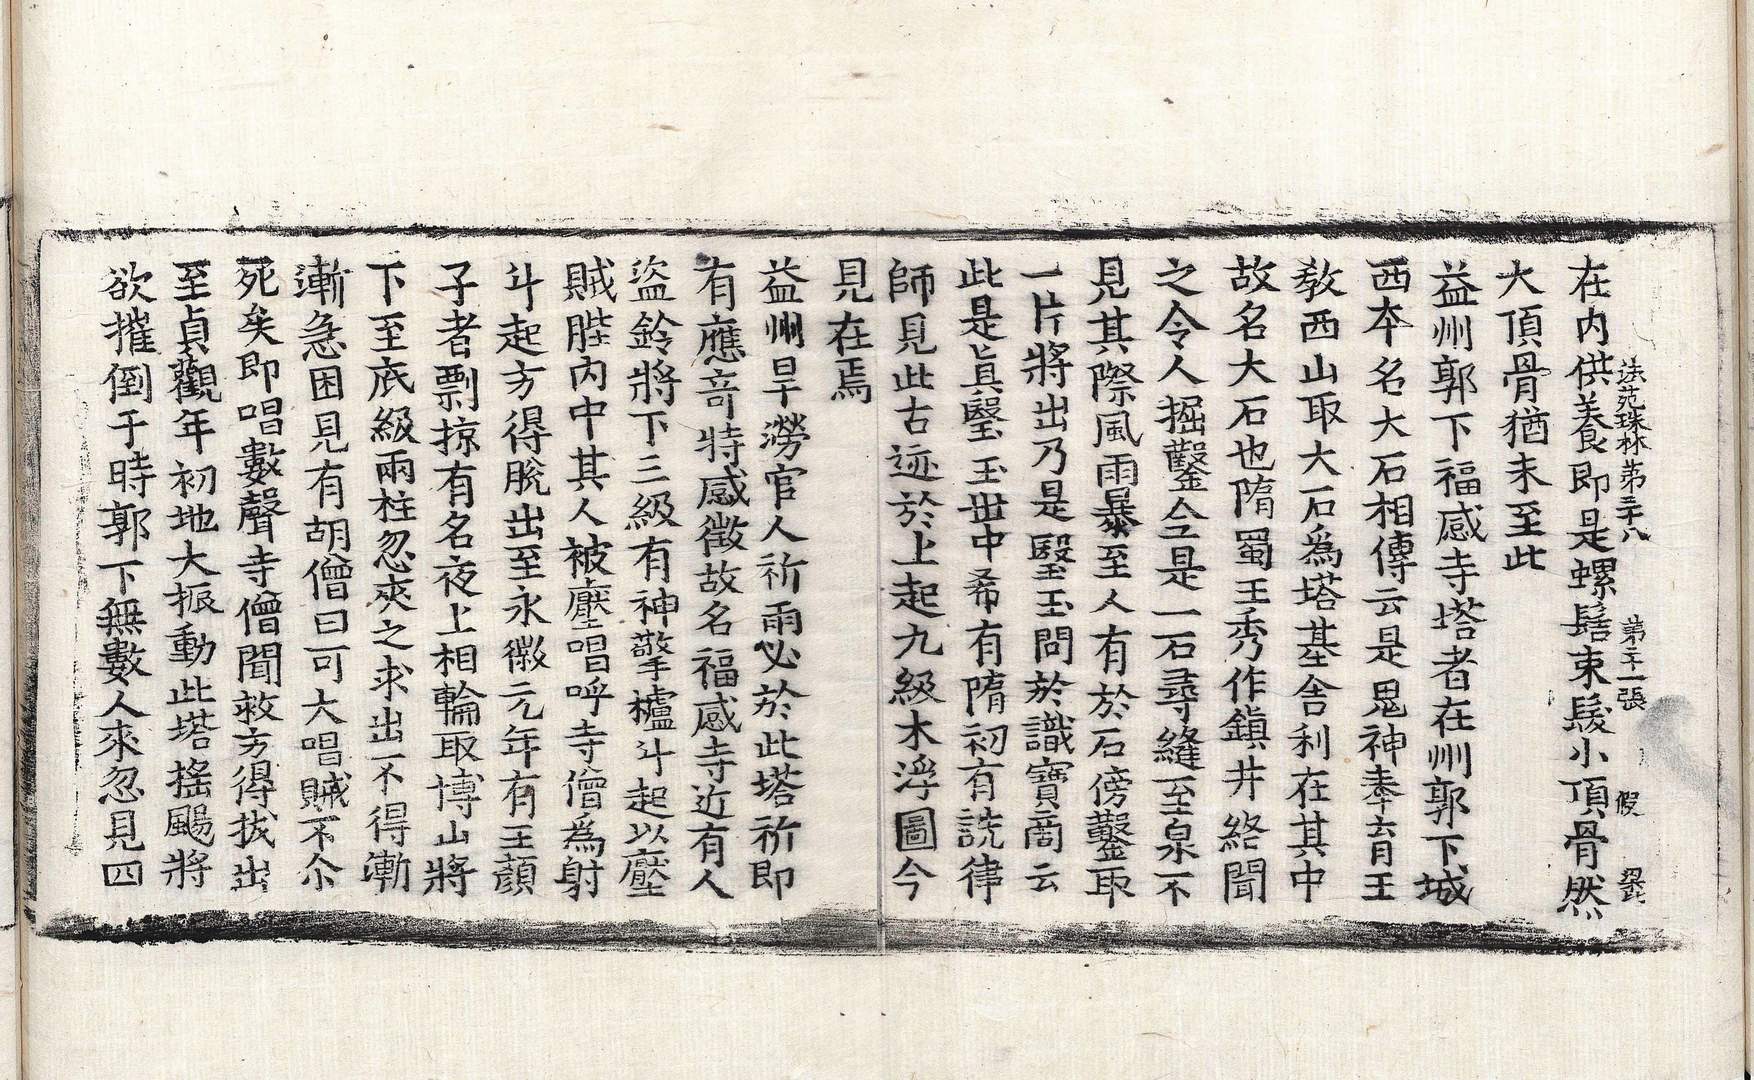 法苑珠林第三十八 第二十一張 假
在内供養即是螺髻束髮小頂骨然
大頂骨猶未至此
益州郭下福感寺塔者在州郭下城
西本名大石相傳云是鬼神奉育王
教西山取大石爲塔基舍利在其中
故名大石也隋蜀王秀作鎮井絡聞
之令人掘鑿全是一石尋縫至泉不
見其際風雨暴至人有於石傍鑿取
一片將出乃是瑿玉問於識寶商云
此是眞瑿玉世中希有隋初有詵律
師見此古迹於上起九級木浮圖今
見在焉
益州旱澇官人祈雨必於此塔祈即
有應竒特感徵故名福感寺近有人
盜鈴將下三級有神擎櫨斗起以壓
賊䏶内中其人被壓唱呼寺僧爲射
斗起方得脫出至永徽元年有王顔
子者剽掠有名夜上相輪取博山將
下至底級兩柱忽夾之求出不得漸
漸急困見有胡僧曰可大唱賊不尒
死矣即唱數聲寺僧聞救方得拔出
至貞觀年初地大振動此塔搖颺將
欲摧倒于時郭下無數人來忽見四